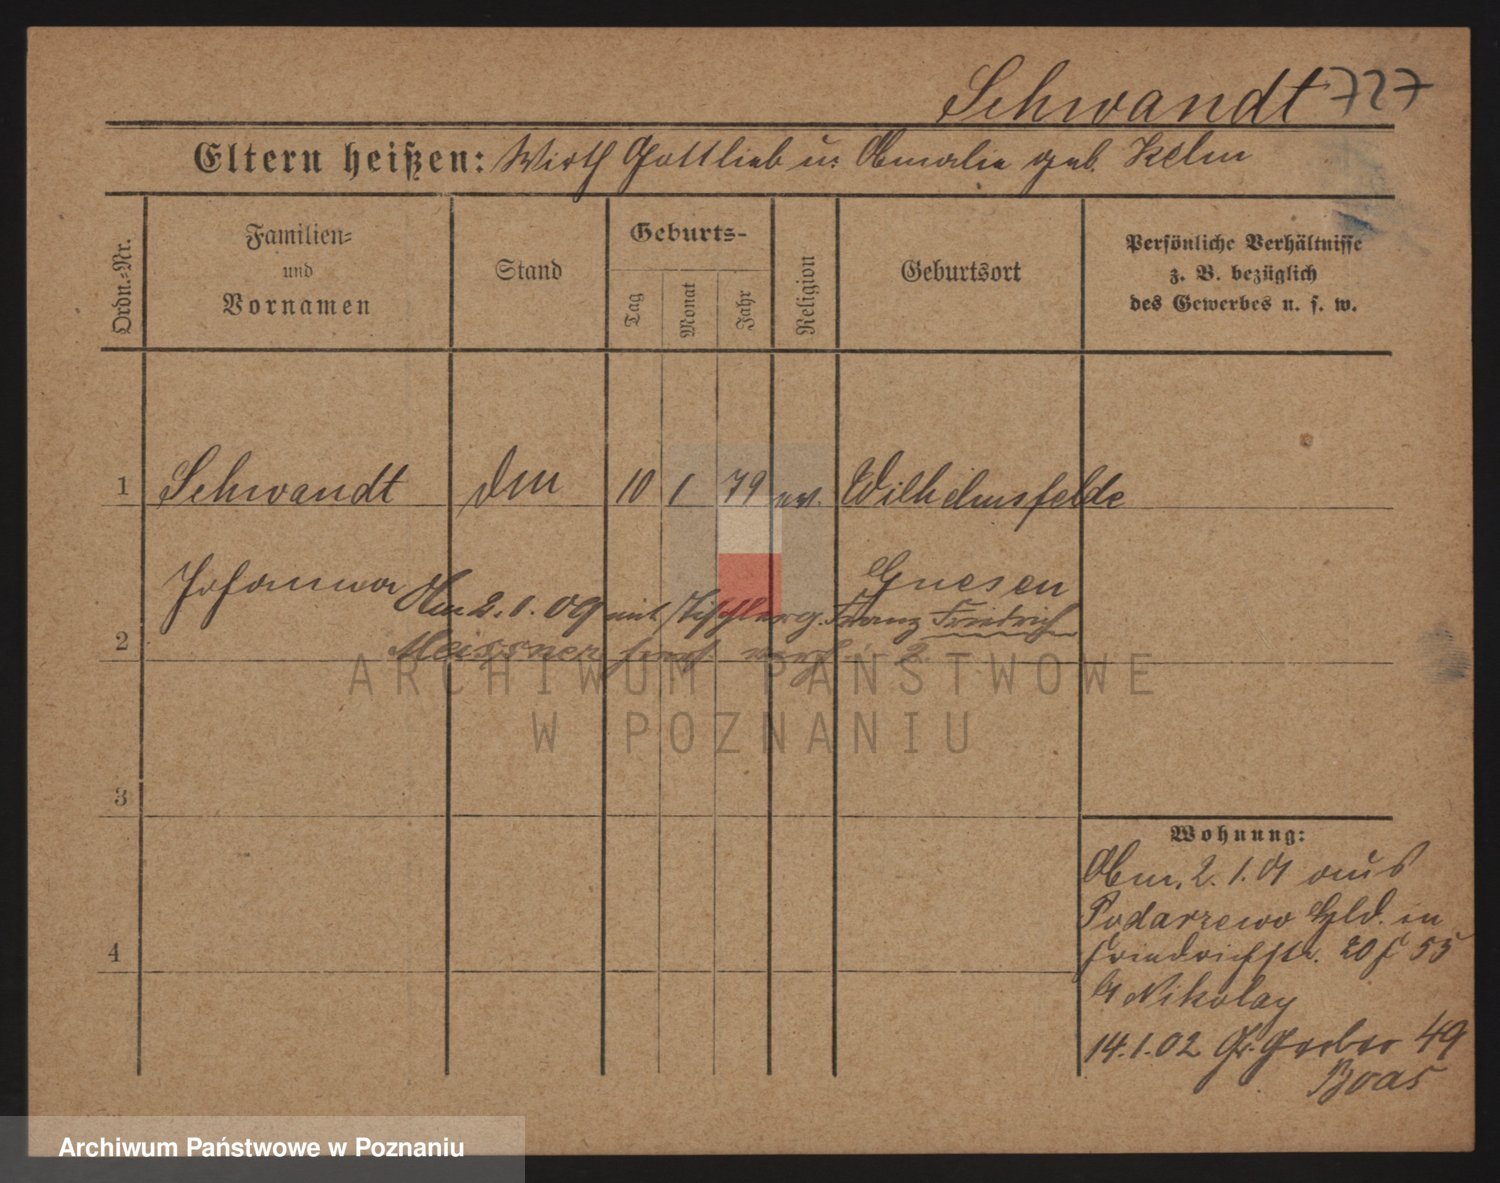 Schwandt 727
Eltern heißen: Wirth Gottlieb u. Amalie geb. Kelm
Ordn.-Nr.
Familien-
und
Vornamen
Stand
Geburts-
Tag
Monat
Jahr
Religion
Geburtsort
Persönliche Verhältnisse
z. B. bezüglich
des Gewerbes u. s. w.
1 Schwandt 10 1 79 ev. Wilhelmsfelde
Johanna Gnesen
Am 2. 1. 09 mit Tischlerg. Franz Friedrich
2 Meissner
ARCHIWUM PAŃSTWOWE
W POZNANIU
3
Wohnung:
Abm. 2. 1. 01 aus
Podarzewo in
4 Friedrichstr. 20 55
Nikolay
14.1.02 Gr. Gerber 49
Boas
Archiwum Państwowe w Poznaniu